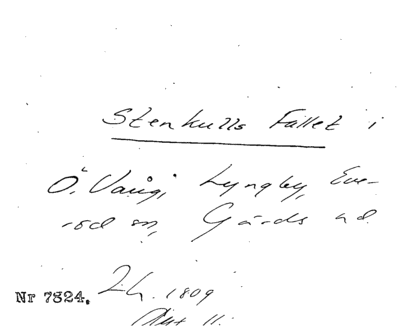 Stenkulls Fallet i
Ö. Vång, Lyngby, Eve-
röd sn, Gärds hd.
Nr 7824. Lh. 1809
Akt 11.